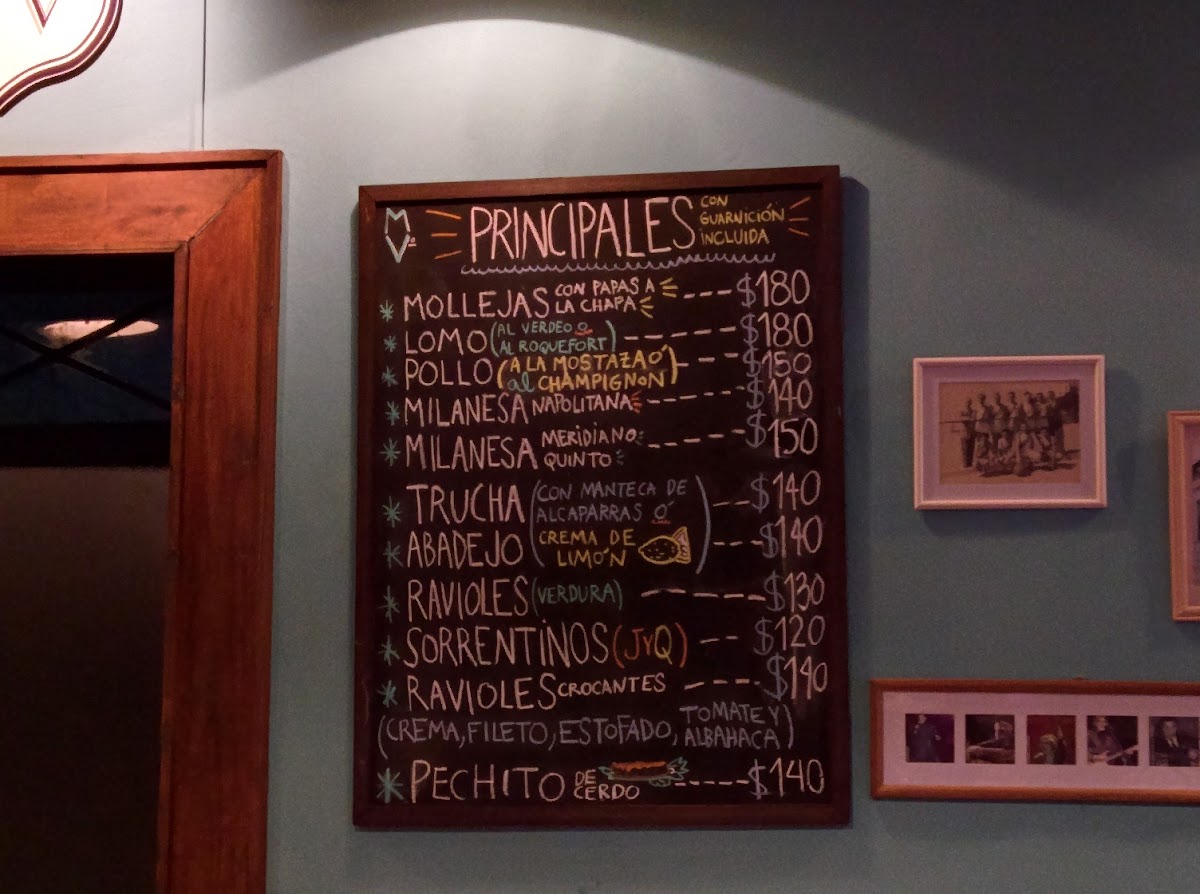 PRINCIPALES CON GUARNICIÓN INCLUIDA
* MOLLEJAS CON PAPAS A LA CHAPA --- $180
* LOMO (AL VERDEO O AL ROQUEFORT) ------ $180
* POLLO (A LA MOSTAZA Ó al CHAMPIGNON) --- $150
* MILANESA NAPOLITANA ---- $140
* MILANESA MERIDIANO QUINTO ---- $150
* TRUCHA (CON MANTECA DE ALCAPARRAS Ó -- $140
* ABADEJO CREMA DE LIMÓN) --- $140
* RAVIOLES (VERDURA) ----- $130
* SORRENTINOS (JYQ) -- $120
* RAVIOLES CROCANTES --- $140
(CREMA, FILETO, ESTOFADO, TOMATE Y ALBAHACA)
* PECHITO DE CERDO ----- $140